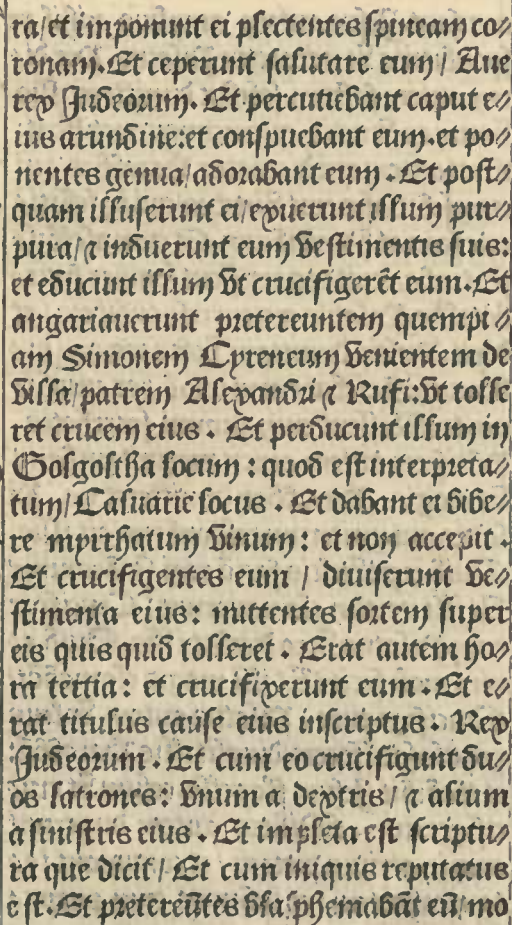 ra/et imponunt ei plectentes spineam co⸗
ronam. Et ceperunt salutare eum / Aue
rex Judeorum. Et percutiebant caput e⸗
ius arundine: et conspuebant eum. et po⸗
nentes genua/adorabant eum. Et post⸗
quam illuserunt ei/exuerunt illum pur⸗
pura/⁊ induerunt eum vestimentis suis:
et educunt illum vt crucifigerēt eum. Et
angariauerunt pretereuntem quempi⸗
am Simonem Cyreneum venientem de
villa/patrem Alexandri ⁊ Rufi: vt tolle
ret crucem eius. Et perducunt illum in
Golgoltha locum: quod est interpreta⸗
tum/Caluarie locus. Et dabant ei bibe⸗
re myrrhatum vinum: et non accepit.
Et crucifigentes eum / diuiserunt ve⸗
stimenta eius: mittentes sortem super
eis quis quid tolleret. Erat autem ho⸗
ra tertia: et crucifixerunt eum. Et e⸗
rat titulus cause eius inscriptus. Rex
Judeorum. Et cum eo crucifigunt du⸗
os latrones: vnum a dextris/⁊ alium
a sinistris eius. Et impleta est scriptu⸗
ra que dicit/Et cum iniquis reputatus
est. Et pretereūtes blasphemabāt eū/mo